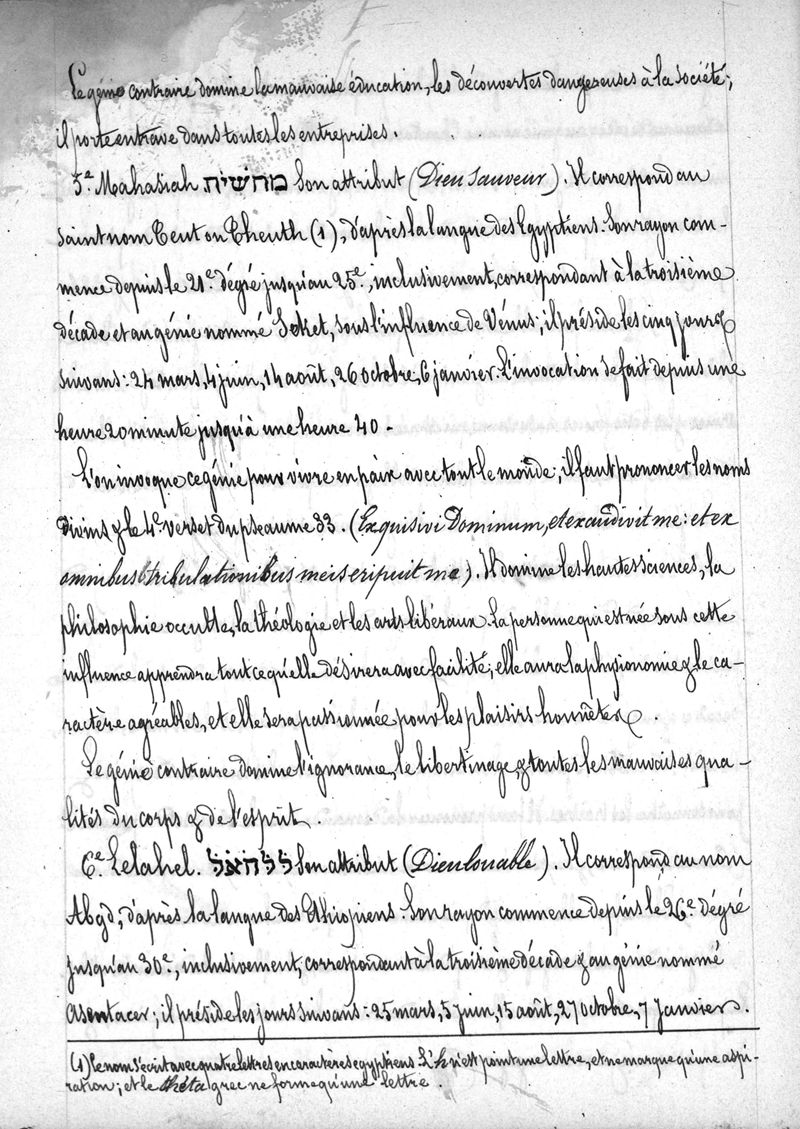 Le génie contraire domine la mauvaise éducation, les découvertes dangereuses à la société;
il porte entrave dans toutes les entreprises.
5.e Mahasiah מחשיה Son attribut (Dieu Sauveur). Il correspond au
saint nom Teut ou Theuth (1), d'après la langue des Egyptiens. Son rayon com-
mence depuis le 21e dégré jusqu'au 25e, inclusivement, correspondant à la troisième
décade et au génie nommé Seket, sous l'influence de Vénus; il préside les cinq jours
suivans: 24 mars, 4 juin, 14 août, 26 octobre, 6 janvier. L'invocation se fait depuis une
heure 20 minute jusqu'à une heure 40 -
L'on invoque ce génie pour vivre en paix avec tout le monde; il faut prononcer les noms
divins & le 4e verset du pseaume 33. (Exquisivi Dominum, et exaudivit me: et ex
omnibus tribulationibus meis eripuit me). Il domine les hautes sciences, la
philosophie occulte, la théologie et les arts libéraux. La personne qui est née sous cette
influence apprendra tout ce qu'elle désirera avec facilité; elle aura la physionomie & le ca-
ractère agréables, et elle sera passionnée pour les plaisirs honnêtes.
Le génie contraire domine l'ignorance, le libertinage, & toutes les mauvaises qua-
lités du corps & de l'esprit.
6e Lelahel. ללהאל Son attribut (Dieu louable). Il correspond au nom
Abgd, d'après la langue des Ethiopiens. Son rayon commence depuis le 26e dégré
jusqu'au 30e, inclusivement, correspondant à la troisième décade & au génie nommé
Asentacer; il préside les jours suivans: 25 mars, 5 juin, 15 août, 27 octobre, 7 janvier.
(1) Ce nom s'écrit avec quatre lettres en caractères egyptiens. L'h n'est point une lettre, et ne marque qu'une aspi-
ration; et le thêta grec ne forme qu'une lettre.